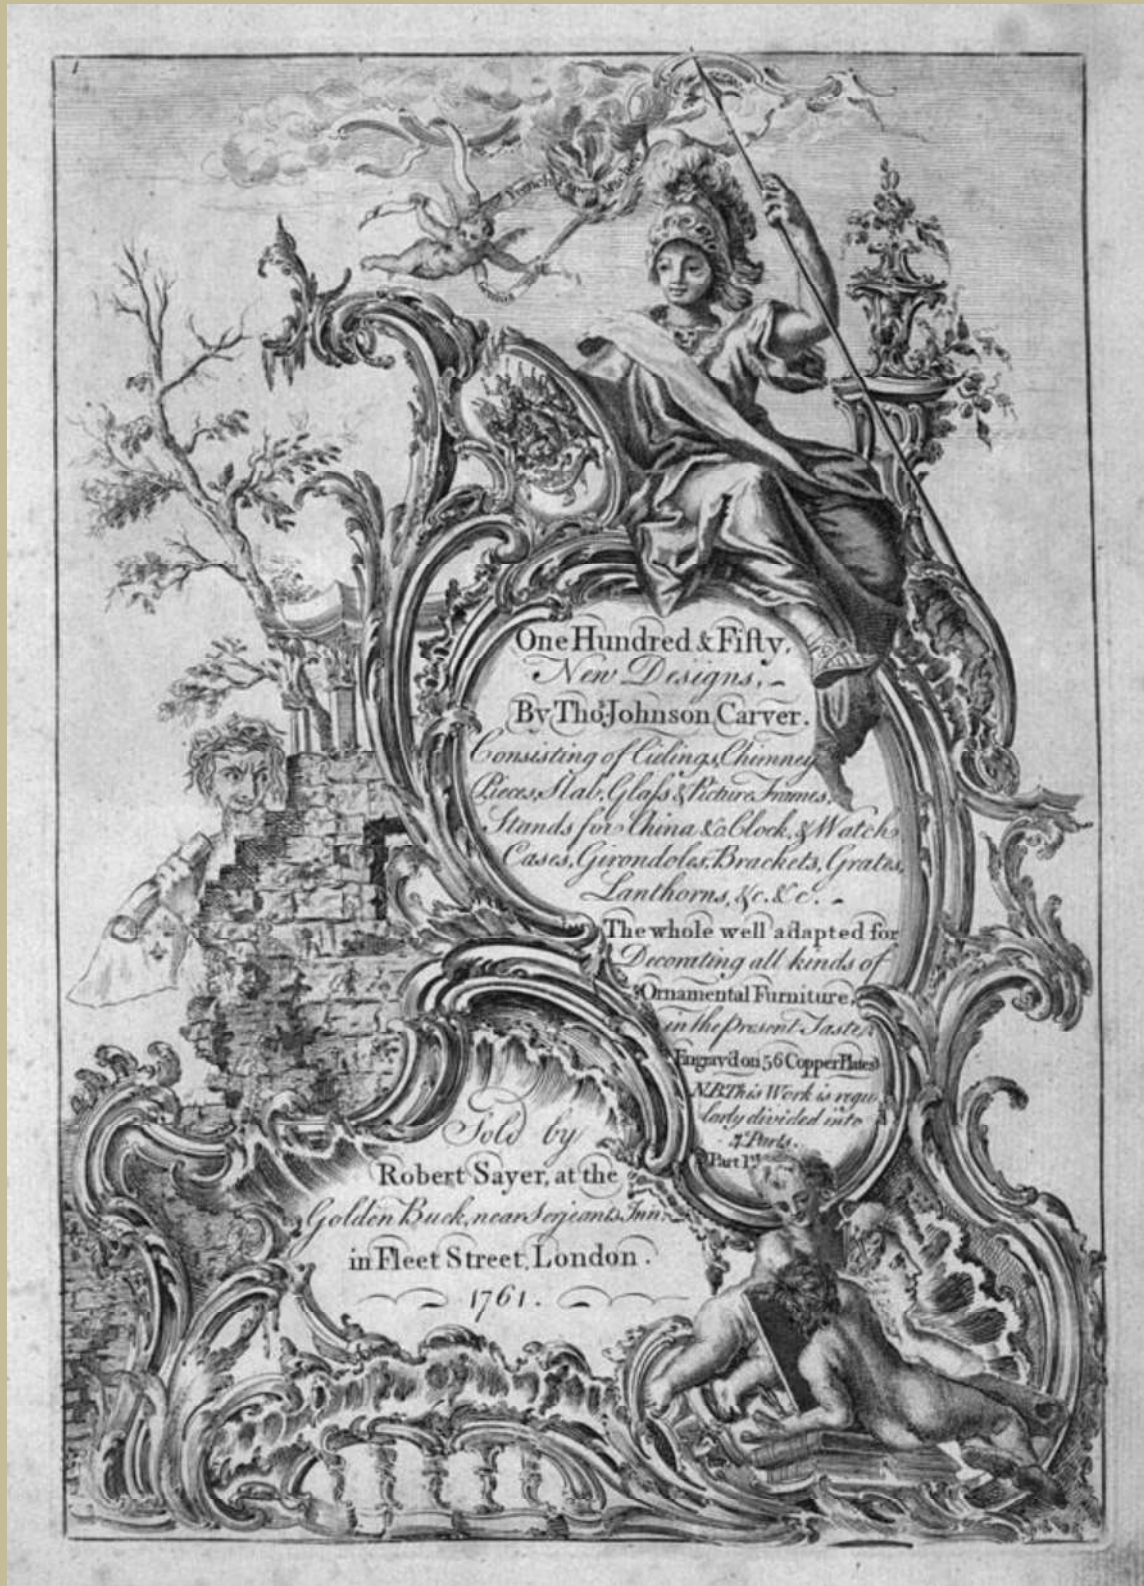 1
French Paper Machee
One Hundred & Fifty,
New Designs,
By Thos. Johnson Carver.
Consisting of Cielings, Chimney
Pieces, Slab, Glass & Picture Frames,
Stands for China &c. Clock, & Watch
Cases, Girondoles, Brackets, Grates,
Lanthorns, &c. &c.
The whole well adapted for
Decorating all kinds of
Ornamental Furniture,
in the Present Taste,
Engrav'd on 56 Copper Plates
N.B. This Work is regu
larly divided into
4 Parts.
Part 1st
Sold by
Robert Sayer, at the
Golden Buck, near Serjeants Inn,
in Fleet Street, London.
1761.